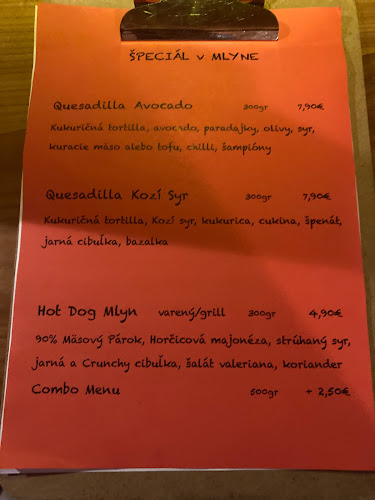 ŠPECIÁL v MLYNE
Quesadilla Avocado 300gr 7,90€
Kukuričná tortilla, avocado, paradajky, olivy, syr,
kuracie mäso alebo tofu, chilli, šampióny
Quesadilla Kozí Syr 300gr 7,90€
Kukuričná tortilla, Kozí syr, kukurica, cukina, špenát,
jarná cibuľka, bazalka
Hot Dog Mlyn varený/grill 300gr 4,90€
90% Mäsový Párok, Horčicová majonéza, strúhaný syr,
jarná a Crunchy cibuľka, šalát valeriana, koriander
Combo Menu 500gr + 2,50€